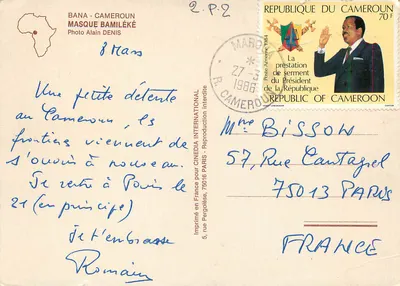 BANA - CAMEROUN
MASQUE BAMILÉKÉ
Photo Alain DENIS
2.P.2
8 Mars
Une petite détente
au Cameroun les
frontières viennent de
s'ouvrir à nouveau.
Je rentre à Paris le
21 (en principe)
Je t'embrasse
Romain
Imprimé en France pour CINEDIA INTERNATIONAL
5, rue Pergolèse, 75016 PARIS - Reproduction interdite
MAROU
27-3
1986
R. CAMEROUN
REPUBLIQUE DU CAMEROUN
70F
La
prestation
de serment
du Président
de la République
REPUBLIC OF CAMEROON
Mme BISSON
57, Rue Cantagrel
75013 PARIS
FRANCE